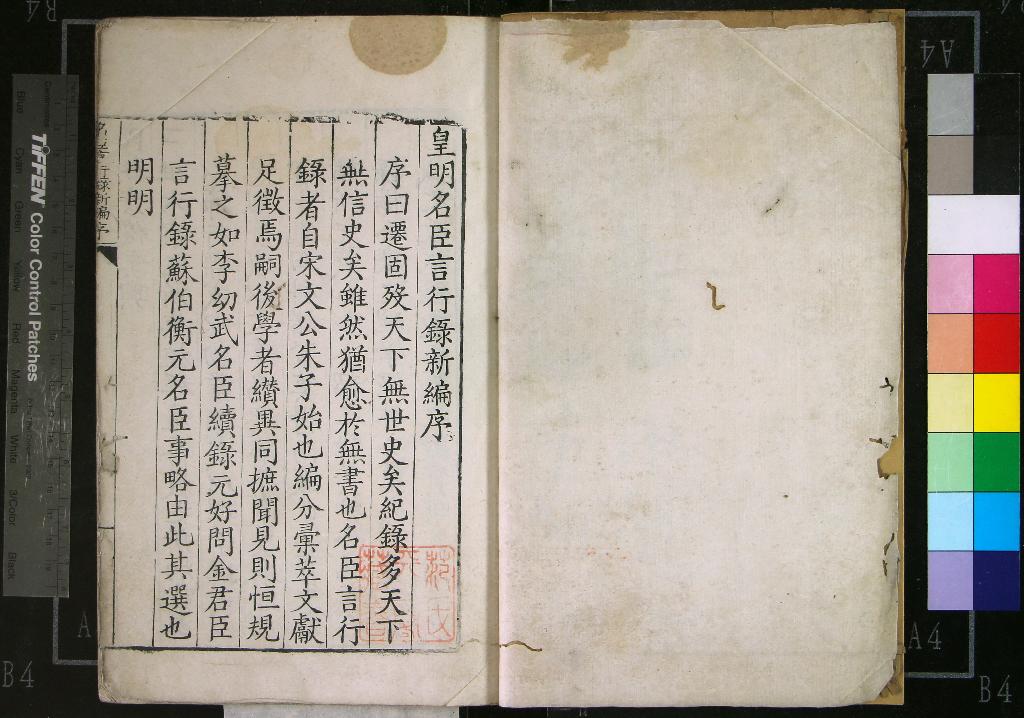 皇明名臣言行錄新編序
序曰遷固歿天下無世史矣紀錄多天下
無信史矣雖然猶愈於無書也名臣言行
錄者自宋文公朱子始也編分彙萃文獻
足徵焉嗣後學者纘異同摭聞見則恒規
摹之如李幼武名臣續錄元好問金君臣
言行錄蘇伯衡元名臣事略由此其選也
明明
名臣言行錄新編序
TIFFEN Color Control Patches
Blue
Cyan
Green
Yellow
Red
Magenta
White
3/Color
Black
A4
A4
B4
B4